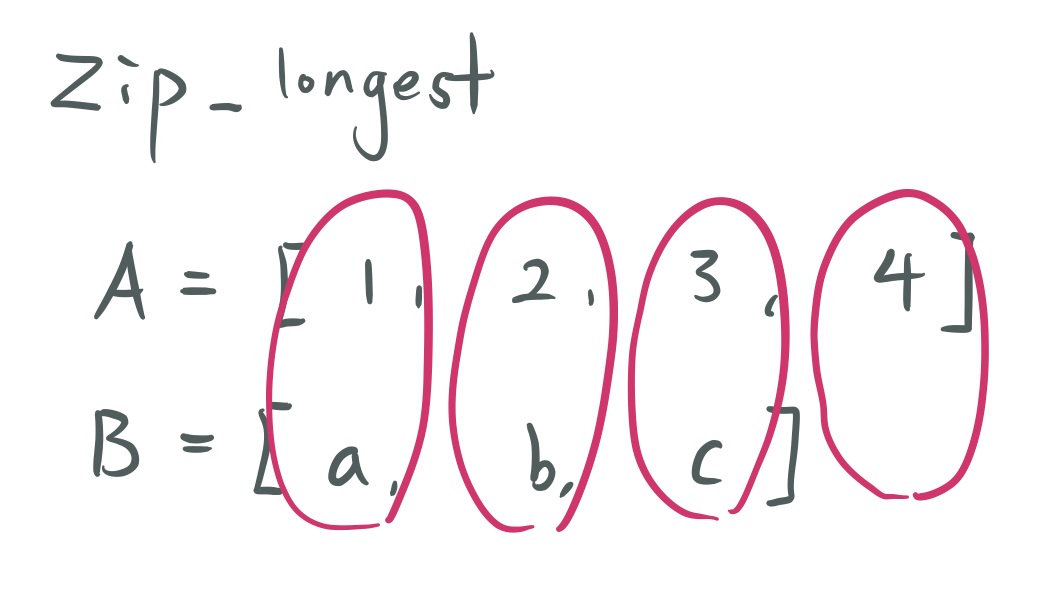 Zip_longest
A = [1, 2, 3, 4]
B = [a, b, c]